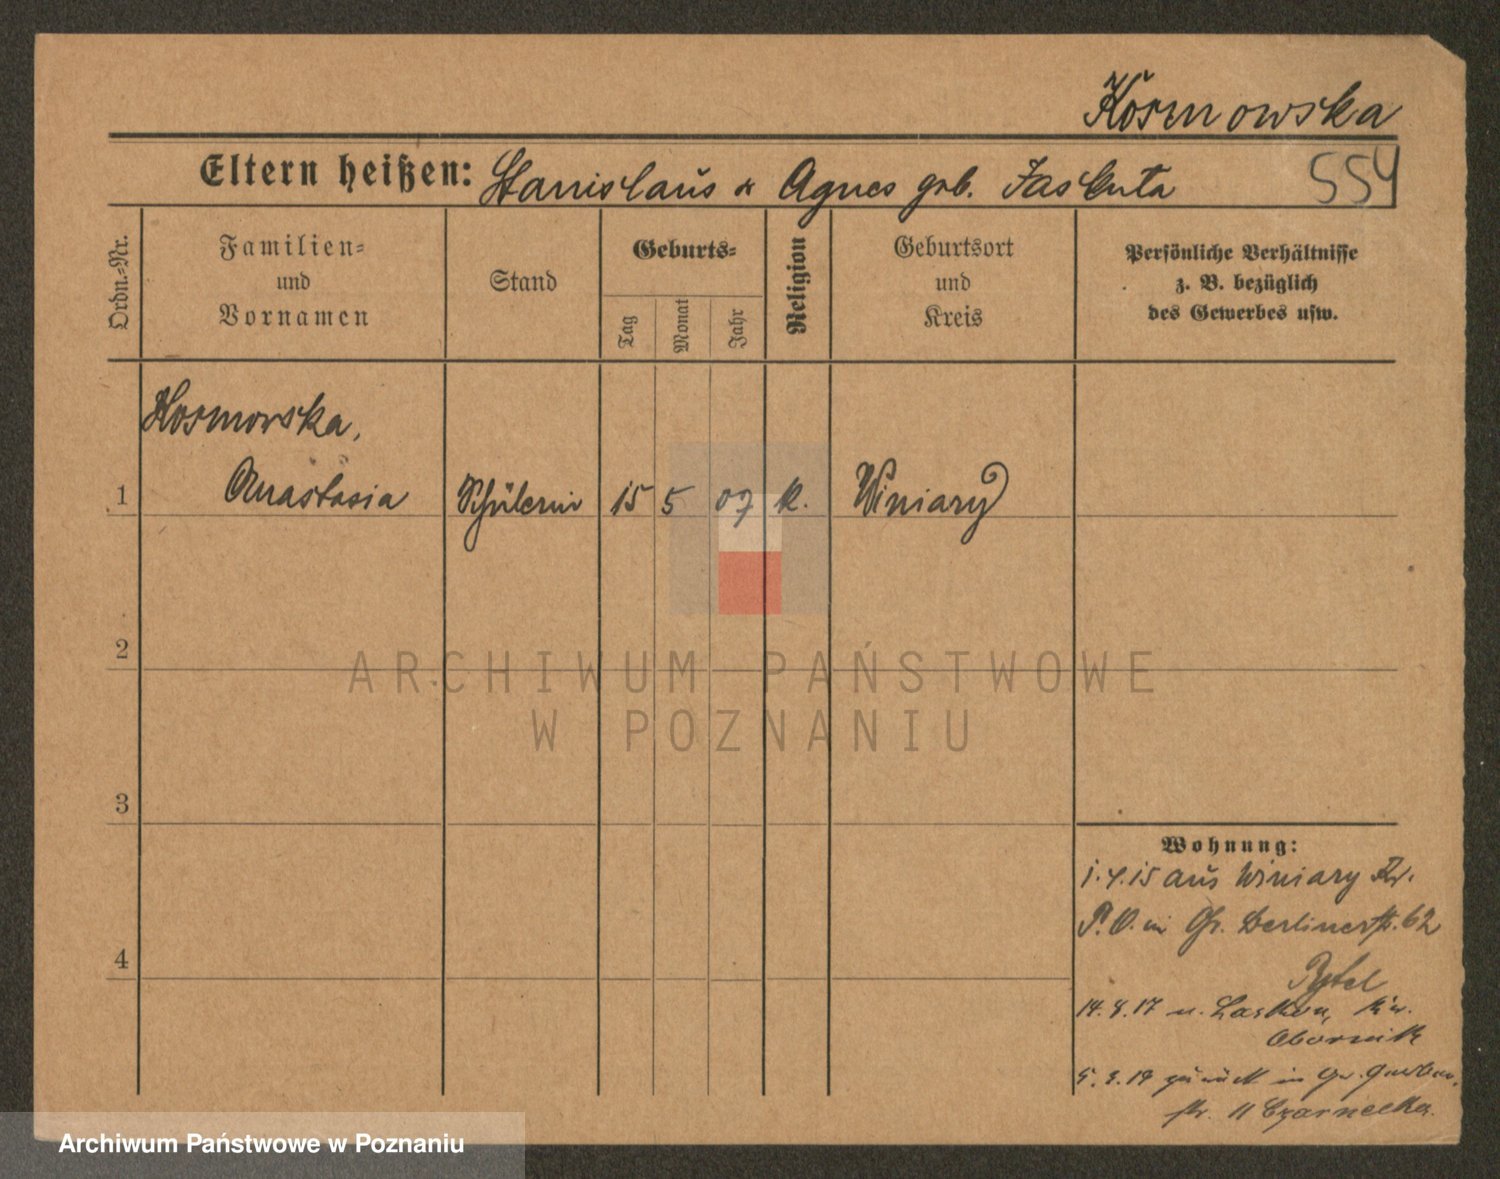 Kosmowska
Eltern heißen: Stanislaus & Agnes geb. Jaskuta
554
Ordn.-Nr.
Familien-
und
Vornamen
Stand
Geburts-
Tag
Monat
Jahr
Religion
Geburtsort
und
Kreis
Persönliche Verhältnisse
z. B. bezüglich
des Gewerbes usw.
Kosmowska,
1 Anastasia Schülerin 15 5 07 K. Winiary
2
3
4
Wohnung:
1.4.15 aus Winiary Kr.
P.O. in Gr. Berlinerstr. 62
Rytel
14.8.17 n. Kr.
Obornik
zurück in Gr.
str. 11 Czarnecka
ARCHIWUM PAŃSTWOWE
W POZNANIU
Archiwum Państwowe w Poznaniu